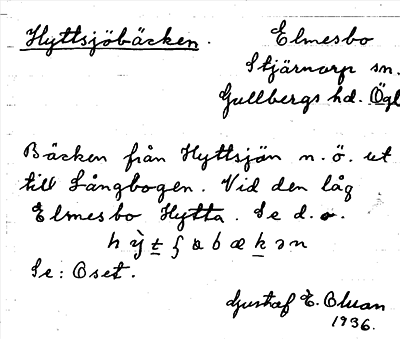 Hyttsjöbäcken. Elmesbo
Stjärnorp sn.
Gullbergs hd. Ögl
Bäcken från Hyttsjön n. ö. ut
till Långbogen. Vid den låg
Elmesbo Hytta. Se d. o.
Se: Oset.
Gustaf E. Oluan
1936.